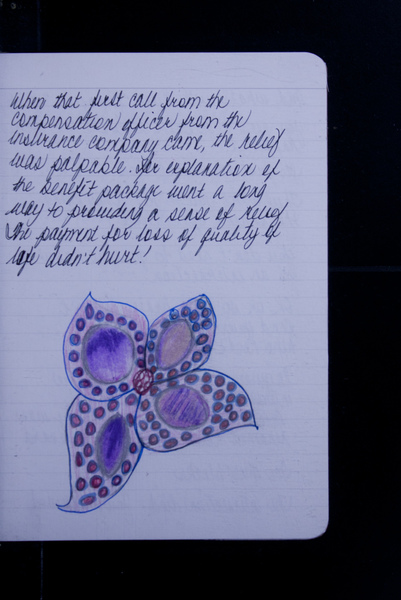 When that first call from the
compensation officer from the
insurance company came, the relief
was palpable. Her explanation of
the benefit package went a long
way to providing a sense of relief
The payment for loss of quality of
life didn't hurt!